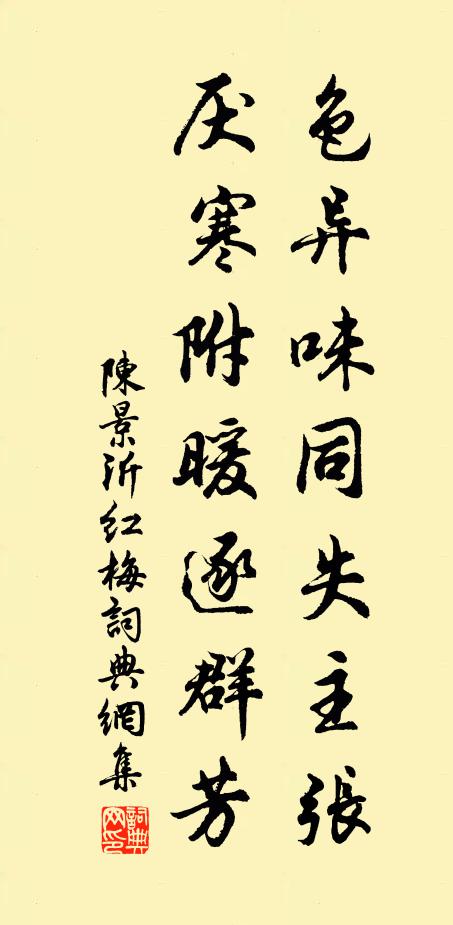 色异味同失主張
厌寒附暖逐群芳
陳景沂红梅詞典網集
詞典網印